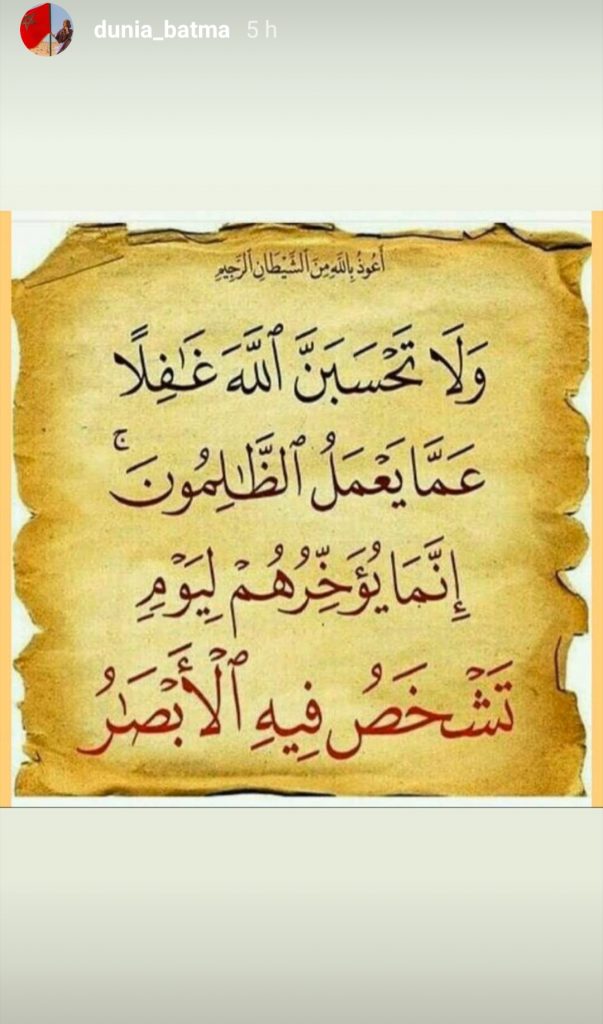 dunia_batma 5 h
أَعُوذُ بِاللَّهِ مِنَ ٱلشَّيْطَانِ ٱلرَّجِيمِ
وَلَا تَحْسَبَنَّ ٱللَّهَ غَٰفِلًا
عَمَّا يَعْمَلُ ٱلظَّٰلِمُونَ ۚ
إِنَّمَا يُؤَخِّرُهُمْ لِيَوْمٍ
تَشْخَصُ فِيهِ ٱلْأَبْصَٰرُ